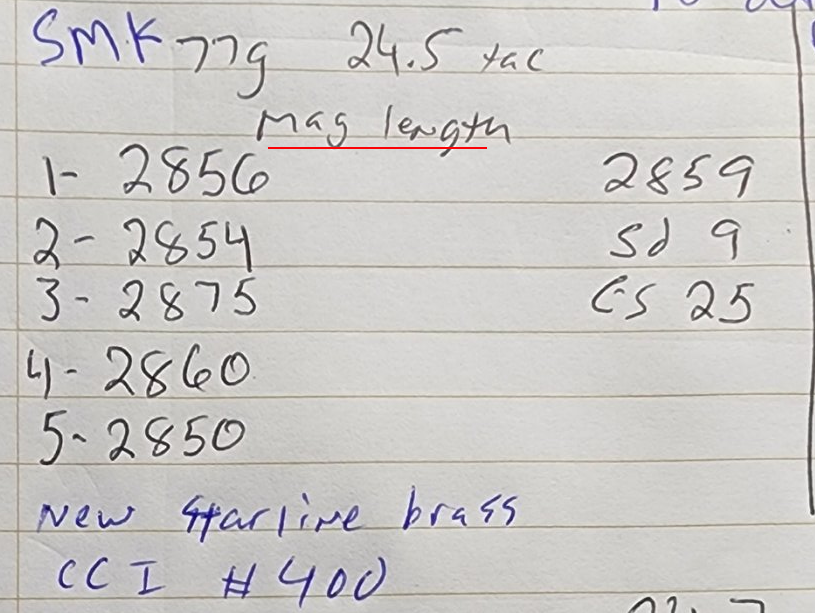 SMK 77g 24.5 tac
Mag length
1- 2856 2859
2- 2854 Sd 9
3- 2875 ES 25
4- 2860
5- 2850
New Starline brass
CCI #400